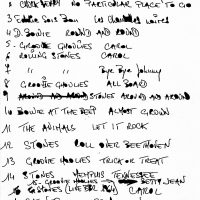 2 CHUCK BERRY NO PARTICULAR PLACE TO GO
3 Eddie
4 D. BOWIE ROUND AND ROUND
5- GROOVIE GHOULIES CAROL
6 ROLLING STONES CAROL
7 " " Bye Bye Johnny
8 GROOVIE GHOULIES ALL ABOARD
9 STONES AROUND AND AROUND
10 BOWIE AT THE BEEP ALMOST GROWN
11 THE ANIMALS LET IT ROCK
12 STONES ROLL OVER BEETHOVEN
13 GROOVIE GHOULIES TRICK OR TREAT
14 STONES MEMPHIS TENNESSEE
15- GROOVIE GHOULIES BETTY JEAN
16 STONES (LIVE BBC 1964) CAROL